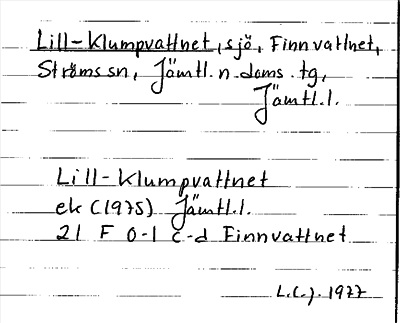 Lill-Klumpvattnet, sjö, Finnvattnet,
Ströms sn, Jämtl. n. doms. tg,
Jämtl.l.
Lill-Klumpvattnet
ek (1975) Jämtl.l.
21 F 0-1 c-d Finnvattnet
L.C.J. 1977